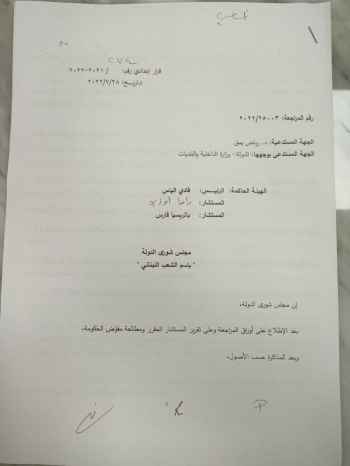 قرار إعدادي رقم: / ٢٠٢١-٢٠٢٢
تاريخ: ٢٠٢٢/٧/٢٨
رقم المراجعة: ٢٠٢٢/٢٥٠٠٣
الجهة المستدعية: د.
الجهة المستدعى بوجهها: الدولة - وزارة الداخلية والبلديات
الهيئة الحاكمة: الرئيس: فادي الياس
المستشار:
المستشار: باتريسيا فارس
مجلس شورى الدولة
" باسم الشعب اللبناني "
إن مجلس شورى الدولة،
بعد الإطلاع على أوراق المراجعة وعلى تقرير المستشار المقرر ومطالعة مفوض الحكومة،
وبعد المذاكرة حسب الأصول،